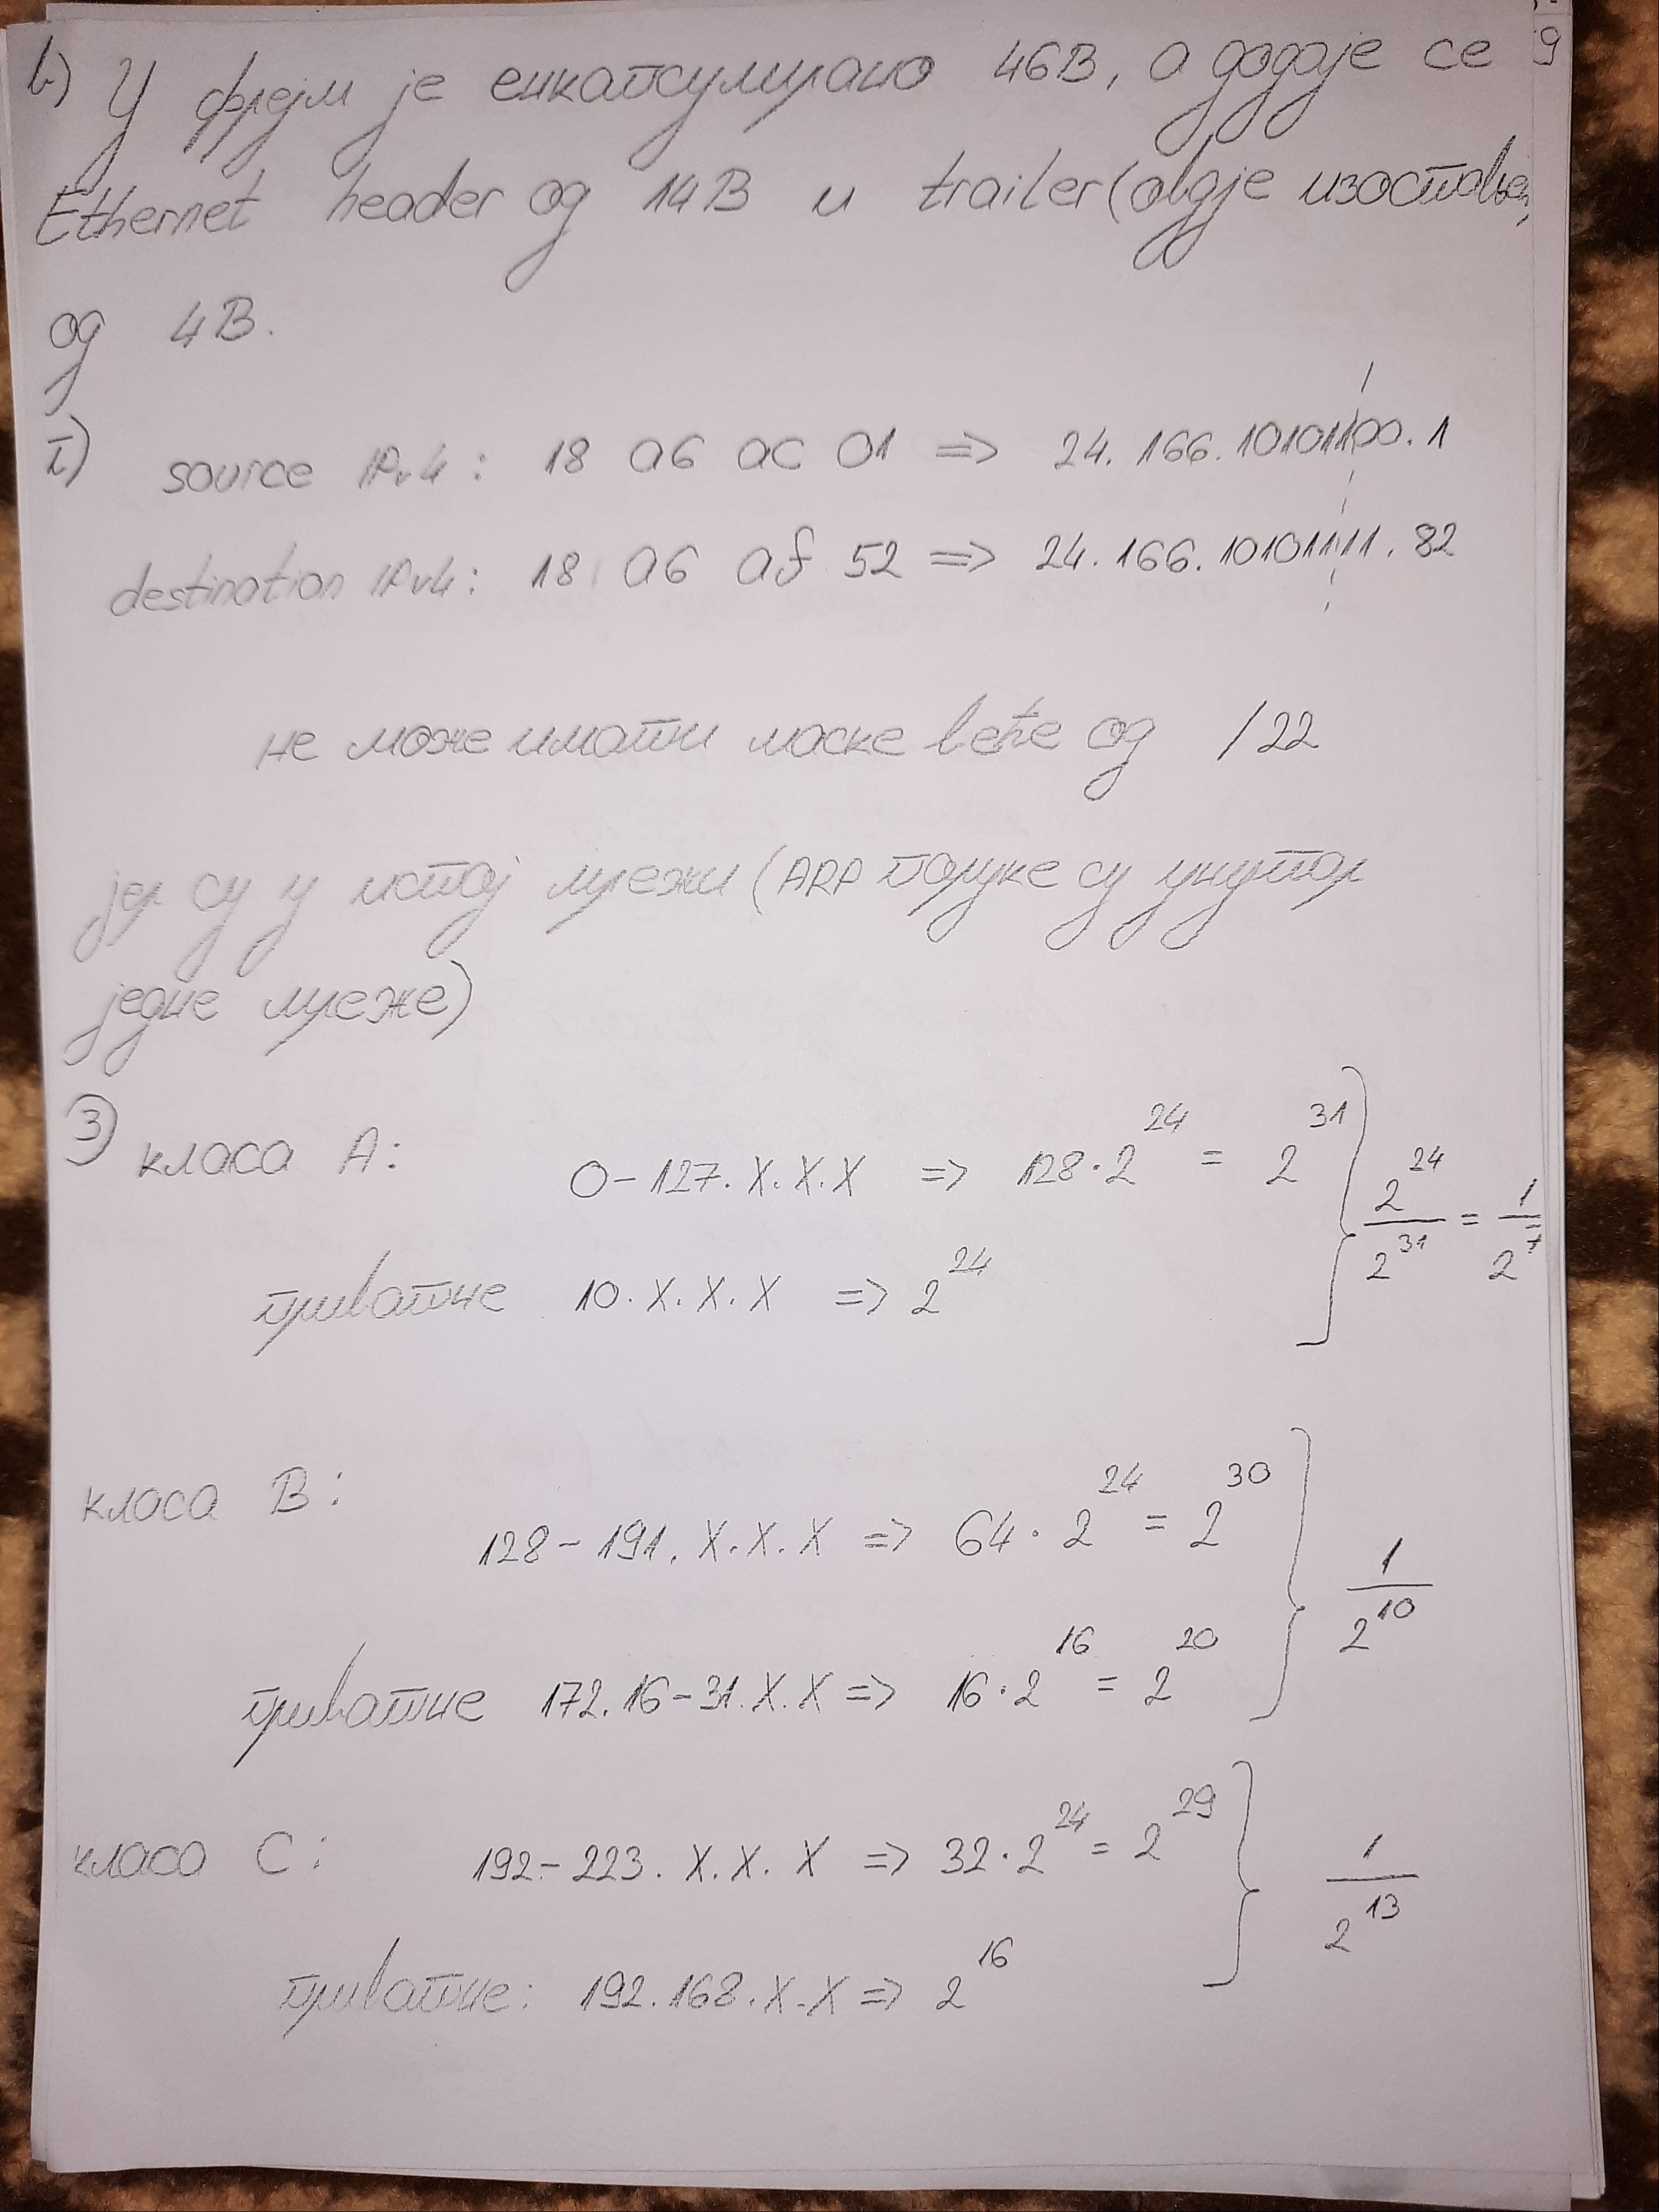 в) У фрејм је енкапсулирано 46B, а додаје се
Ethernet header од 14B и trailer (овдје
од 4B.
г) source IPv4: 18 a6 ac 01 => 24.166.10101100.1
destination IPv4: 18 a6 af 52 => 24.166.10101111.82
не може имати маске веће од /22
јер су у истој мрежи (ARP поруке су унутар
једне мреже)
3) класа A: 0-127.X.X.X => 128·2^24 = 2^31 } 2^24/2^31 = 1/2^7
приватне 10.X.X.X => 2^24
класа B: 128-191.X.X.X => 64·2^24 = 2^30 } 1/2^10
приватне 172.16-31.X.X => 16·2^16 = 2^20
класа C: 192-223.X.X.X => 32·2^24 = 2^29 } 1/2^13
приватне: 192.168.X.X => 2^16